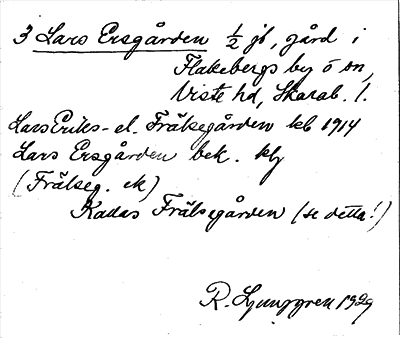 3 Lars Ersgården ½ jb, gård i
Flakebergs by o sn,
Viste hd, Skarab. l.
Lars Eriks- el. Frälsegården kb 1914
Lars Ersgården bek.
(Frälseg. ek)
Kallas Frälsegården (se detta!)
R. Ljunggren 1929